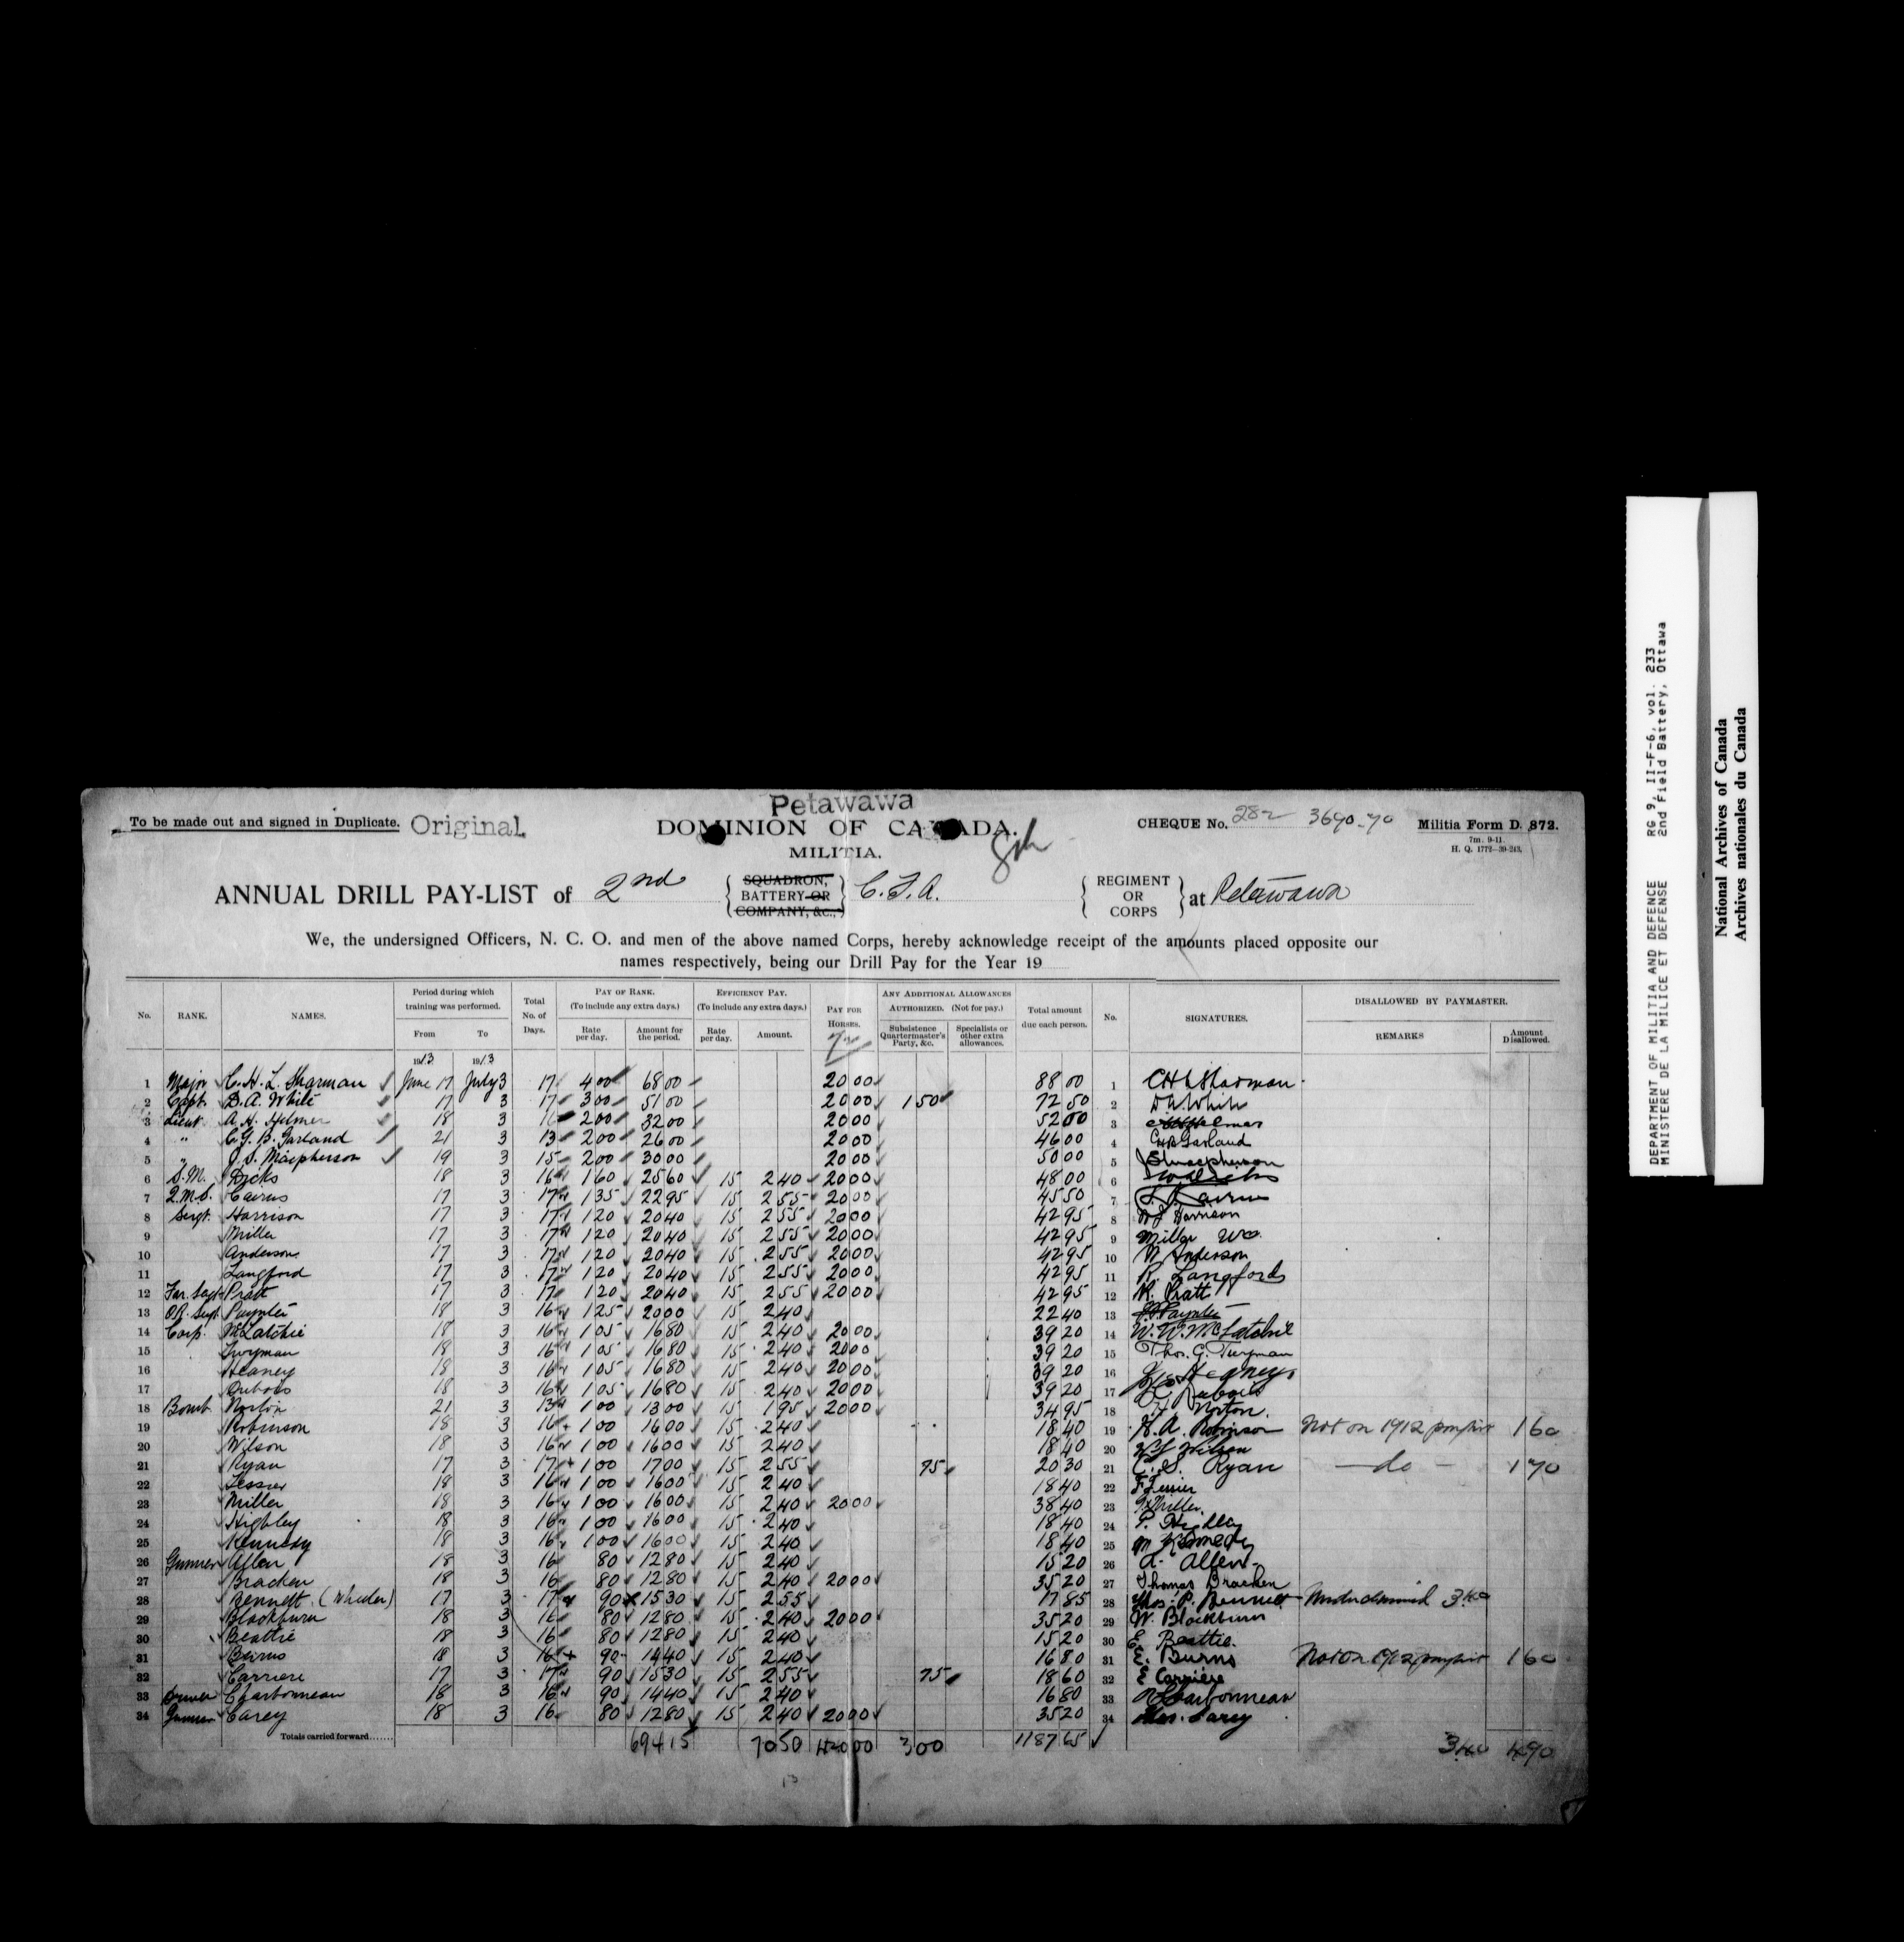 Petawawa
To be made out and signed in Duplicate. Original DOMINION OF CANADA. CHEQUE No. 282 3690.70 Militia Form D. 873.
7m. 9-11.
H. Q. 1772-39-243.
MILITIA.
ANNUAL DRILL PAY-LIST of 2nd { SQUADRON, BATTERY OR COMPANY, &c., } C.F.A. { REGIMENT OR CORPS } at Petawawa
We, the undersigned Officers, N. C. O. and men of the above named Corps, hereby acknowledge receipt of the amounts placed opposite our
names respectively, being our Drill Pay for the Year 19
No. RANK. NAMES. Period during which training was performed. From To Total No. of Days. PAY OF RANK. (To include any extra days.) Rate per day. Amount for the period. EFFICIENCY PAY. (To include any extra days.) Rate per day. Amount. PAY FOR HORSES. ANY ADDITIONAL ALLOWANCES AUTHORIZED. (Not for pay.) Subsistence Quartermaster's Party, &c. Specialists or other extra allowances. Total amount due each person. No. SIGNATURES. DISALLOWED BY PAYMASTER. REMARKS Amount Disallowed.
1913 1913
1 Major C. H. L. Sharman June 17 July 3 17 4 00 68 00 20 00 88 00 1 C H L Sharman
2 Capt. D. A. White 17 3 17 3 00 51 00 20 00 1 50 72 50 2 D A White
3 Lieut. A. H. Helmer 18 3 16 2 00 32 00 20 00 52 00 3 Helmer
4 " C. G. B. Garland 21 3 13 2 00 26 00 20 00 46 00 4 Garland
5 " J. S. Macpherson 19 3 15 2 00 30 00 20 00 50 00 5 J S Macpherson
6 S.M. Dicks 18 3 16 1 60 25 60 15 2 40 20 00 48 00 6
7 Q.M.S. Cairns 17 3 17 1 35 22 95 15 2 55 20 00 45 50 7 Cairns
8 Sergt. Harrison 17 3 17 1 20 20 40 15 2 55 20 00 42 95 8 Harrison
9 Miller 17 3 17 1 20 20 40 15 2 55 20 00 42 95 9 Miller Wm
10 Anderson 17 3 17 1 20 20 40 15 2 55 20 00 42 95 10 W Anderson
11 Langford 17 3 17 1 20 20 40 15 2 55 20 00 42 95 11 R. Langford
12 Far. Sergt. Pratt 17 3 17 1 20 20 40 15 2 55 20 00 42 95 12 Pratt
13 O.R. Sergt. Paynter 18 3 16 1 25 20 00 15 2 40 22 40 13 Paynter
14 Corp. McLatchie 18 3 16 1 05 16 80 15 2 40 20 00 39 20 14 W. W. McLatchie
15 Twyman 18 3 16 1 05 16 80 15 2 40 20 00 39 20 15 Thos. G. Twyman
16 Heaney 18 3 16 1 05 16 80 15 2 40 20 00 39 20 16 Heaney
17 Dubois 18 3 16 1 05 16 80 15 2 40 20 00 39 20 17 Dubois
18 Bomb. Norton 21 3 13 1 00 13 00 15 1 95 20 00 34 95 18 Norton.
19 Robinson 18 3 16 1 00 16 00 15 2 40 18 40 19 H. A. Robinson Not on 1912 paylist 1 60
20 Wilson 18 3 16 1 00 16 00 15 2 40 18 40 20 Wilson
21 Ryan 17 3 17 1 00 17 00 15 2 55 75 20 30 21 C. S. Ryan — do — 1 70
22 Tessier 18 3 16 1 00 16 00 15 2 40 18 40 22 F Tessier
23 Miller 18 3 16 1 00 16 00 15 2 40 20 00 38 40 23 Miller
24 Highley 18 3 16 1 00 16 00 15 2 40 18 40 24 P. Highley
25 Kennedy 18 3 16 1 00 16 00 15 2 40 18 40 25 M Kennedy
26 Gunner Allen 18 3 16 80 12 80 15 2 40 15 20 26 A. Allen
27 Bracken 18 3 16 80 12 80 15 2 40 20 00 35 20 27 Thomas Bracken
28 Bennett (Wheeler) 17 3 17 90 15 30 15 2 55 17 85 28 Thos. P. Bennett 3 40
29 Blackburn 18 3 16 80 12 80 15 2 40 20 00 35 20 29 W. Blackburn
30 Beattie 18 3 16 80 12 80 15 2 40 15 20 30 E. Beattie
31 Burns 18 3 16 90 14 40 15 2 40 16 80 31 E. Burns Not on 1912 paylist 1 60
32 Carriere 17 3 17 90 15 30 15 2 55 75 18 60 32 E Carrière
33 Driver Charbonneau 18 3 16 90 14 40 15 2 40 16 80 33 Charbonneau
34 Gunner Carey 18 3 16 80 12 80 15 2 40 20 00 35 20 34 Carey
Totals carried forward...... 694 15 70 50 420 00 3 00 1187 65 3 40 4 90
DEPARTMENT OF MILITIA AND DEFENCE RG 9, II-F-6, vol. 233
MINISTERE DE LA MILICE ET DEFENSE 2nd Field Battery, Ottawa
National Archives of Canada
Archives nationales du Canada